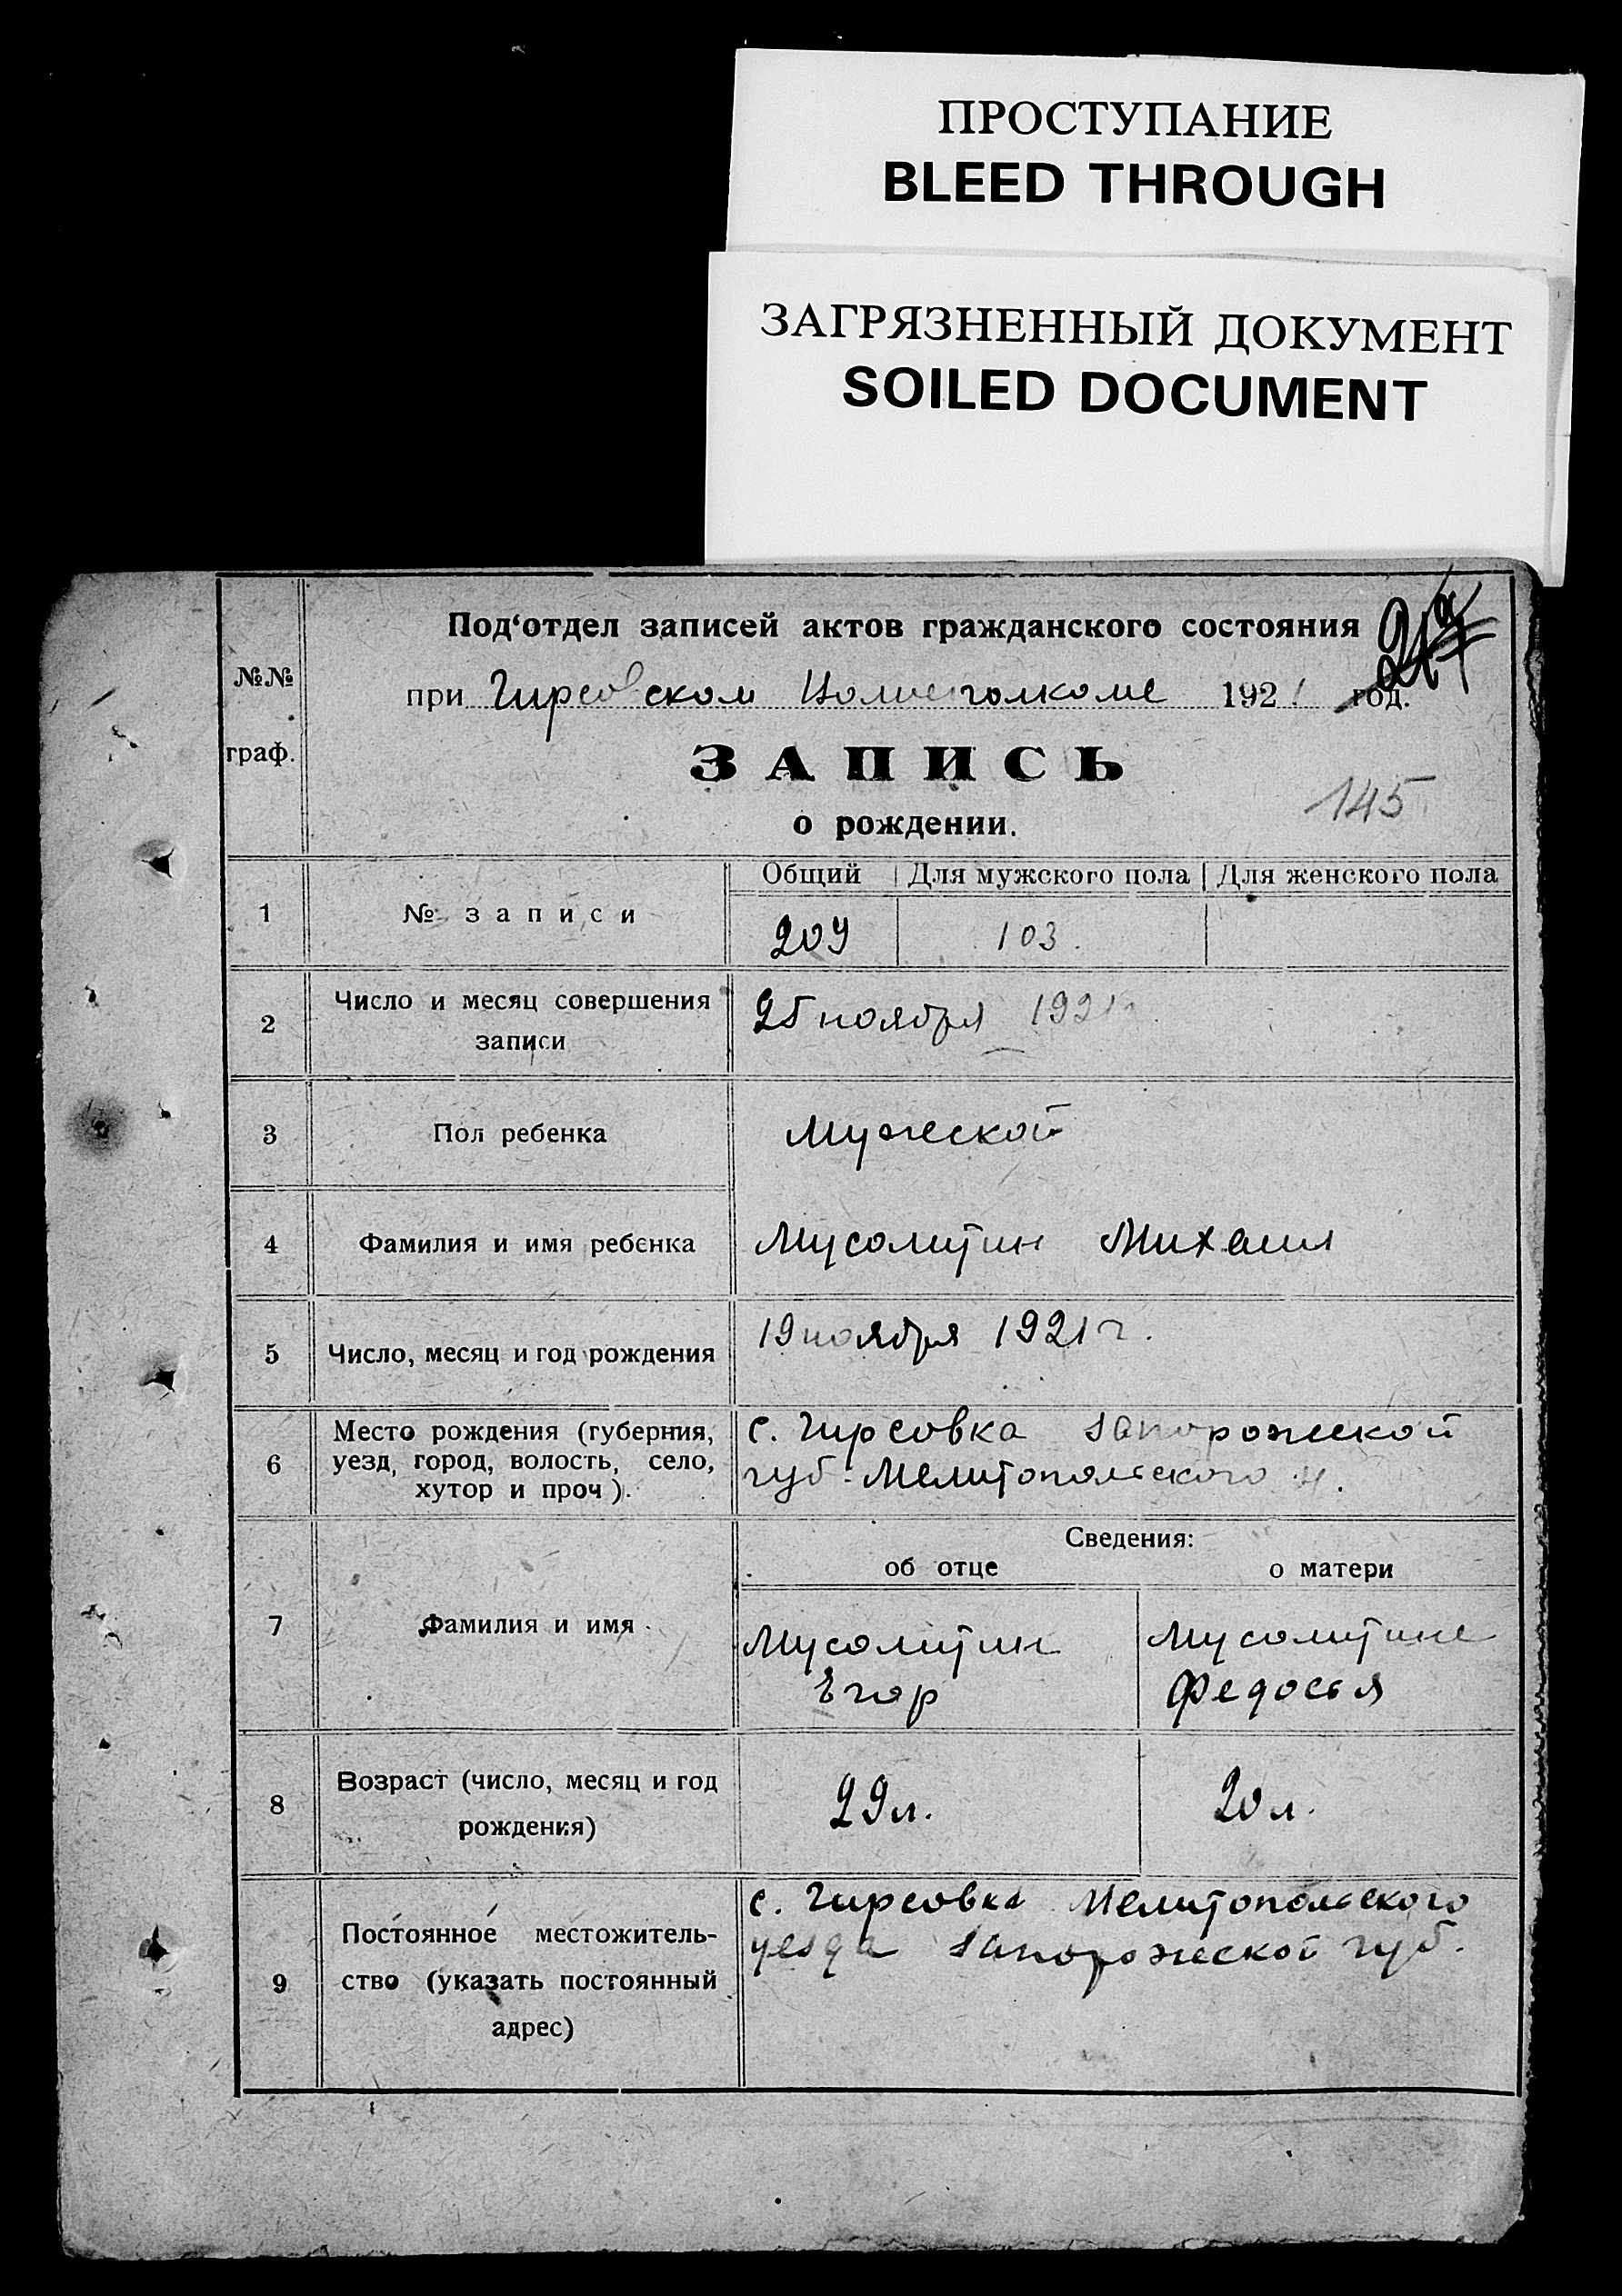 ПРОСТУПАНИЕ
BLEED THROUGH
ЗАГРЯЗНЕННЫЙ ДОКУМЕНТ
SOILED DOCUMENT
Под‘отдел записей актов гражданского состояния
№№ граф.
при Гирсовском 1921 год.
ЗАПИСЬ
о рождении.
145
Общий Для мужского пола Для женского пола
1 № записи 209 103.
2 Число и месяц совершения
записи
25 ноября 1921 г.
3 Пол ребенка Мужской
4 Фамилия и имя ребенка Мусолитин Михаил
5 Число, месяц и год рождения 19 ноября 1921 г.
6 Место рождения (губерния,
уезд, город, волость, село,
хутор и проч).
с. Гирсовка Запорожской
губ. Мелитопольского у.
Сведения:
об отце о матери
7 Фамилия и имя
Мусолитин
Егор
Мусолитина
Федосья
8 Возраст (число, месяц и год
рождения)
29 л. 20 л.
9 Постоянное местожитель-
ство (указать постоянный
адрес)
с. Гирсовка Мелитопольского
уезда Запорожской губ.